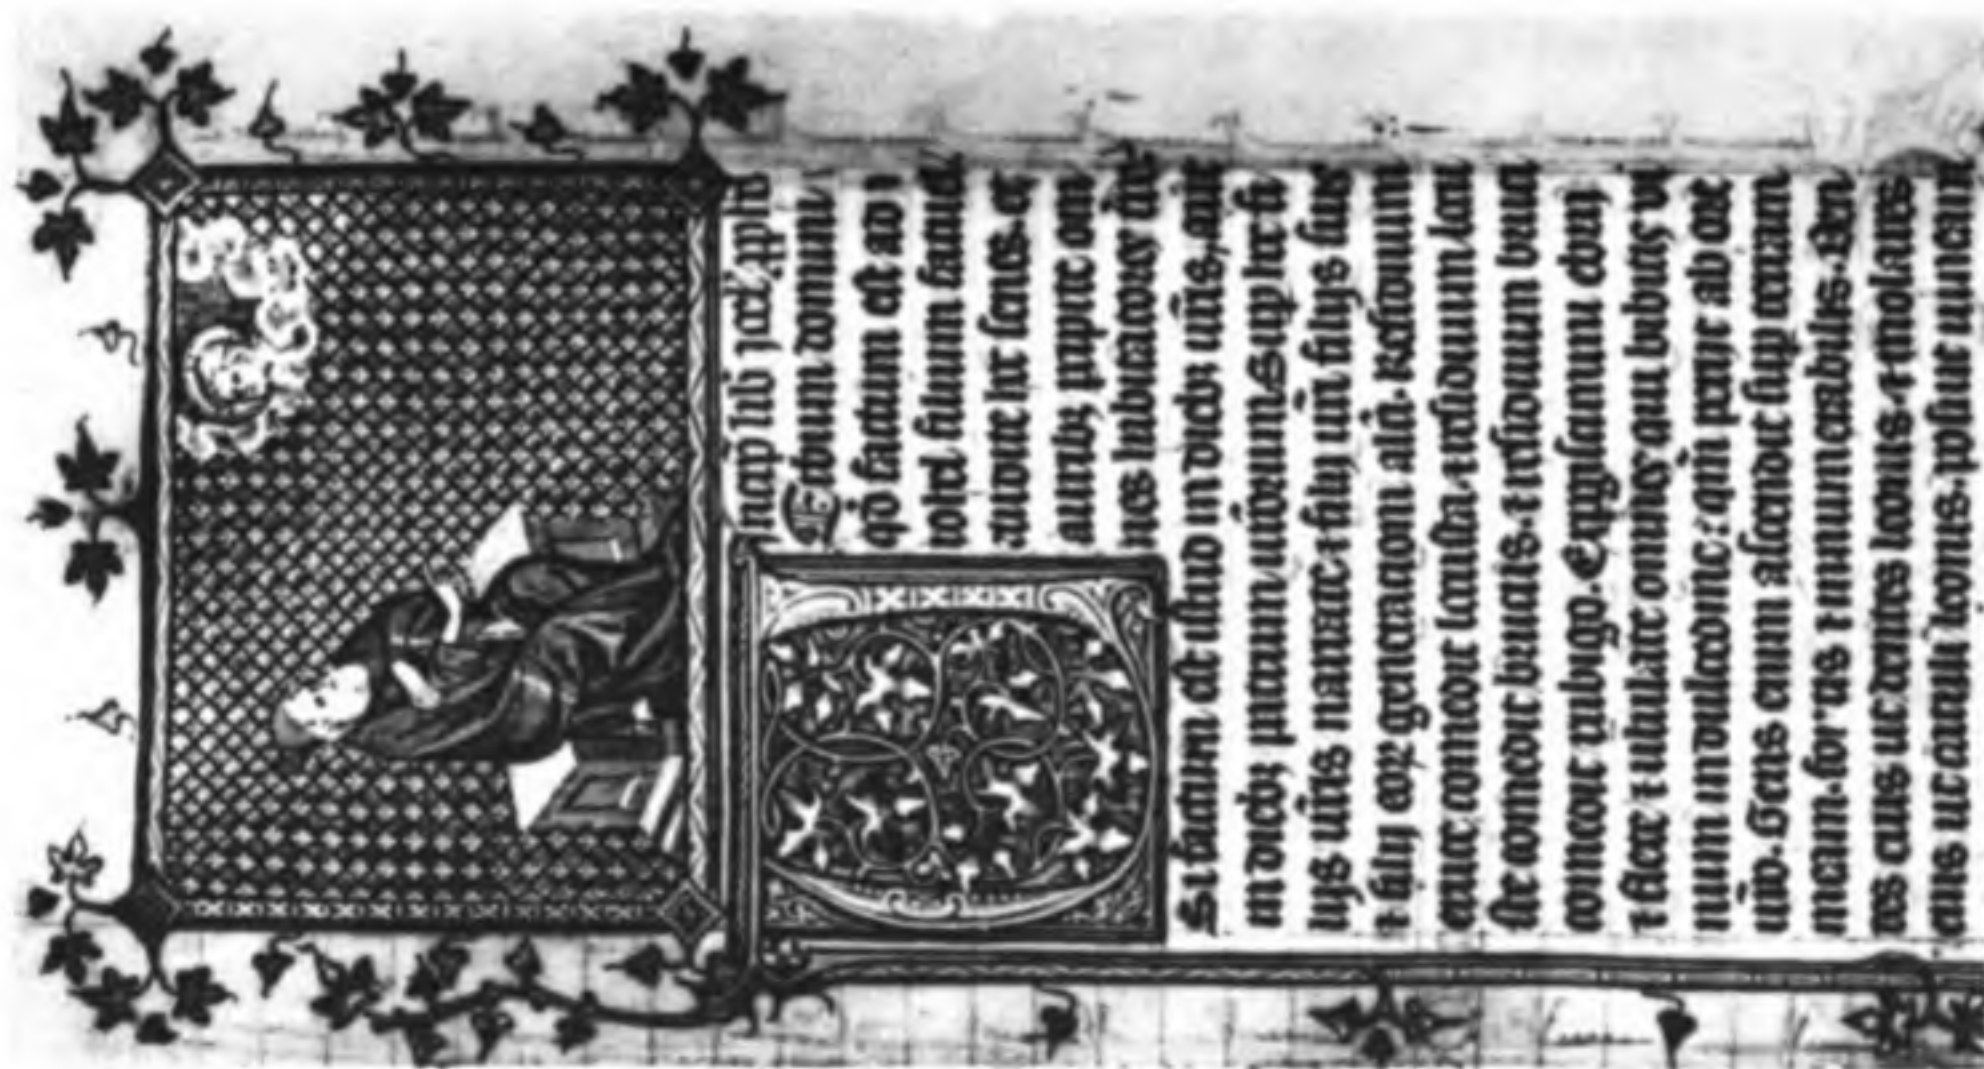 Incip lib
Erbum domini
qd factum est ad
iohel filium fatuel
audite hec senes. et
auribz pcipite om
nes habitatores
Si factum est istud in diebz uris, aut
in diebz patrum urorum. Sup hoc fi
liis uris narrate. et filii uri filiis suis
et filii eor generationi. Residuum
eruce comedit locusta. et residuum locu
ste comedit brucus. et residuum bruci
comedit rubigo. ebrii
et flete et ululate omnes qui bibitis vi
num in dulcedine: qm periit ab ore
uro. Gens enim ascendit sup terram
meam. fortis et innumerabilis. Den
tes eius ut dentes leonis. et molares
eius ut catuli leonis. posuit uineam